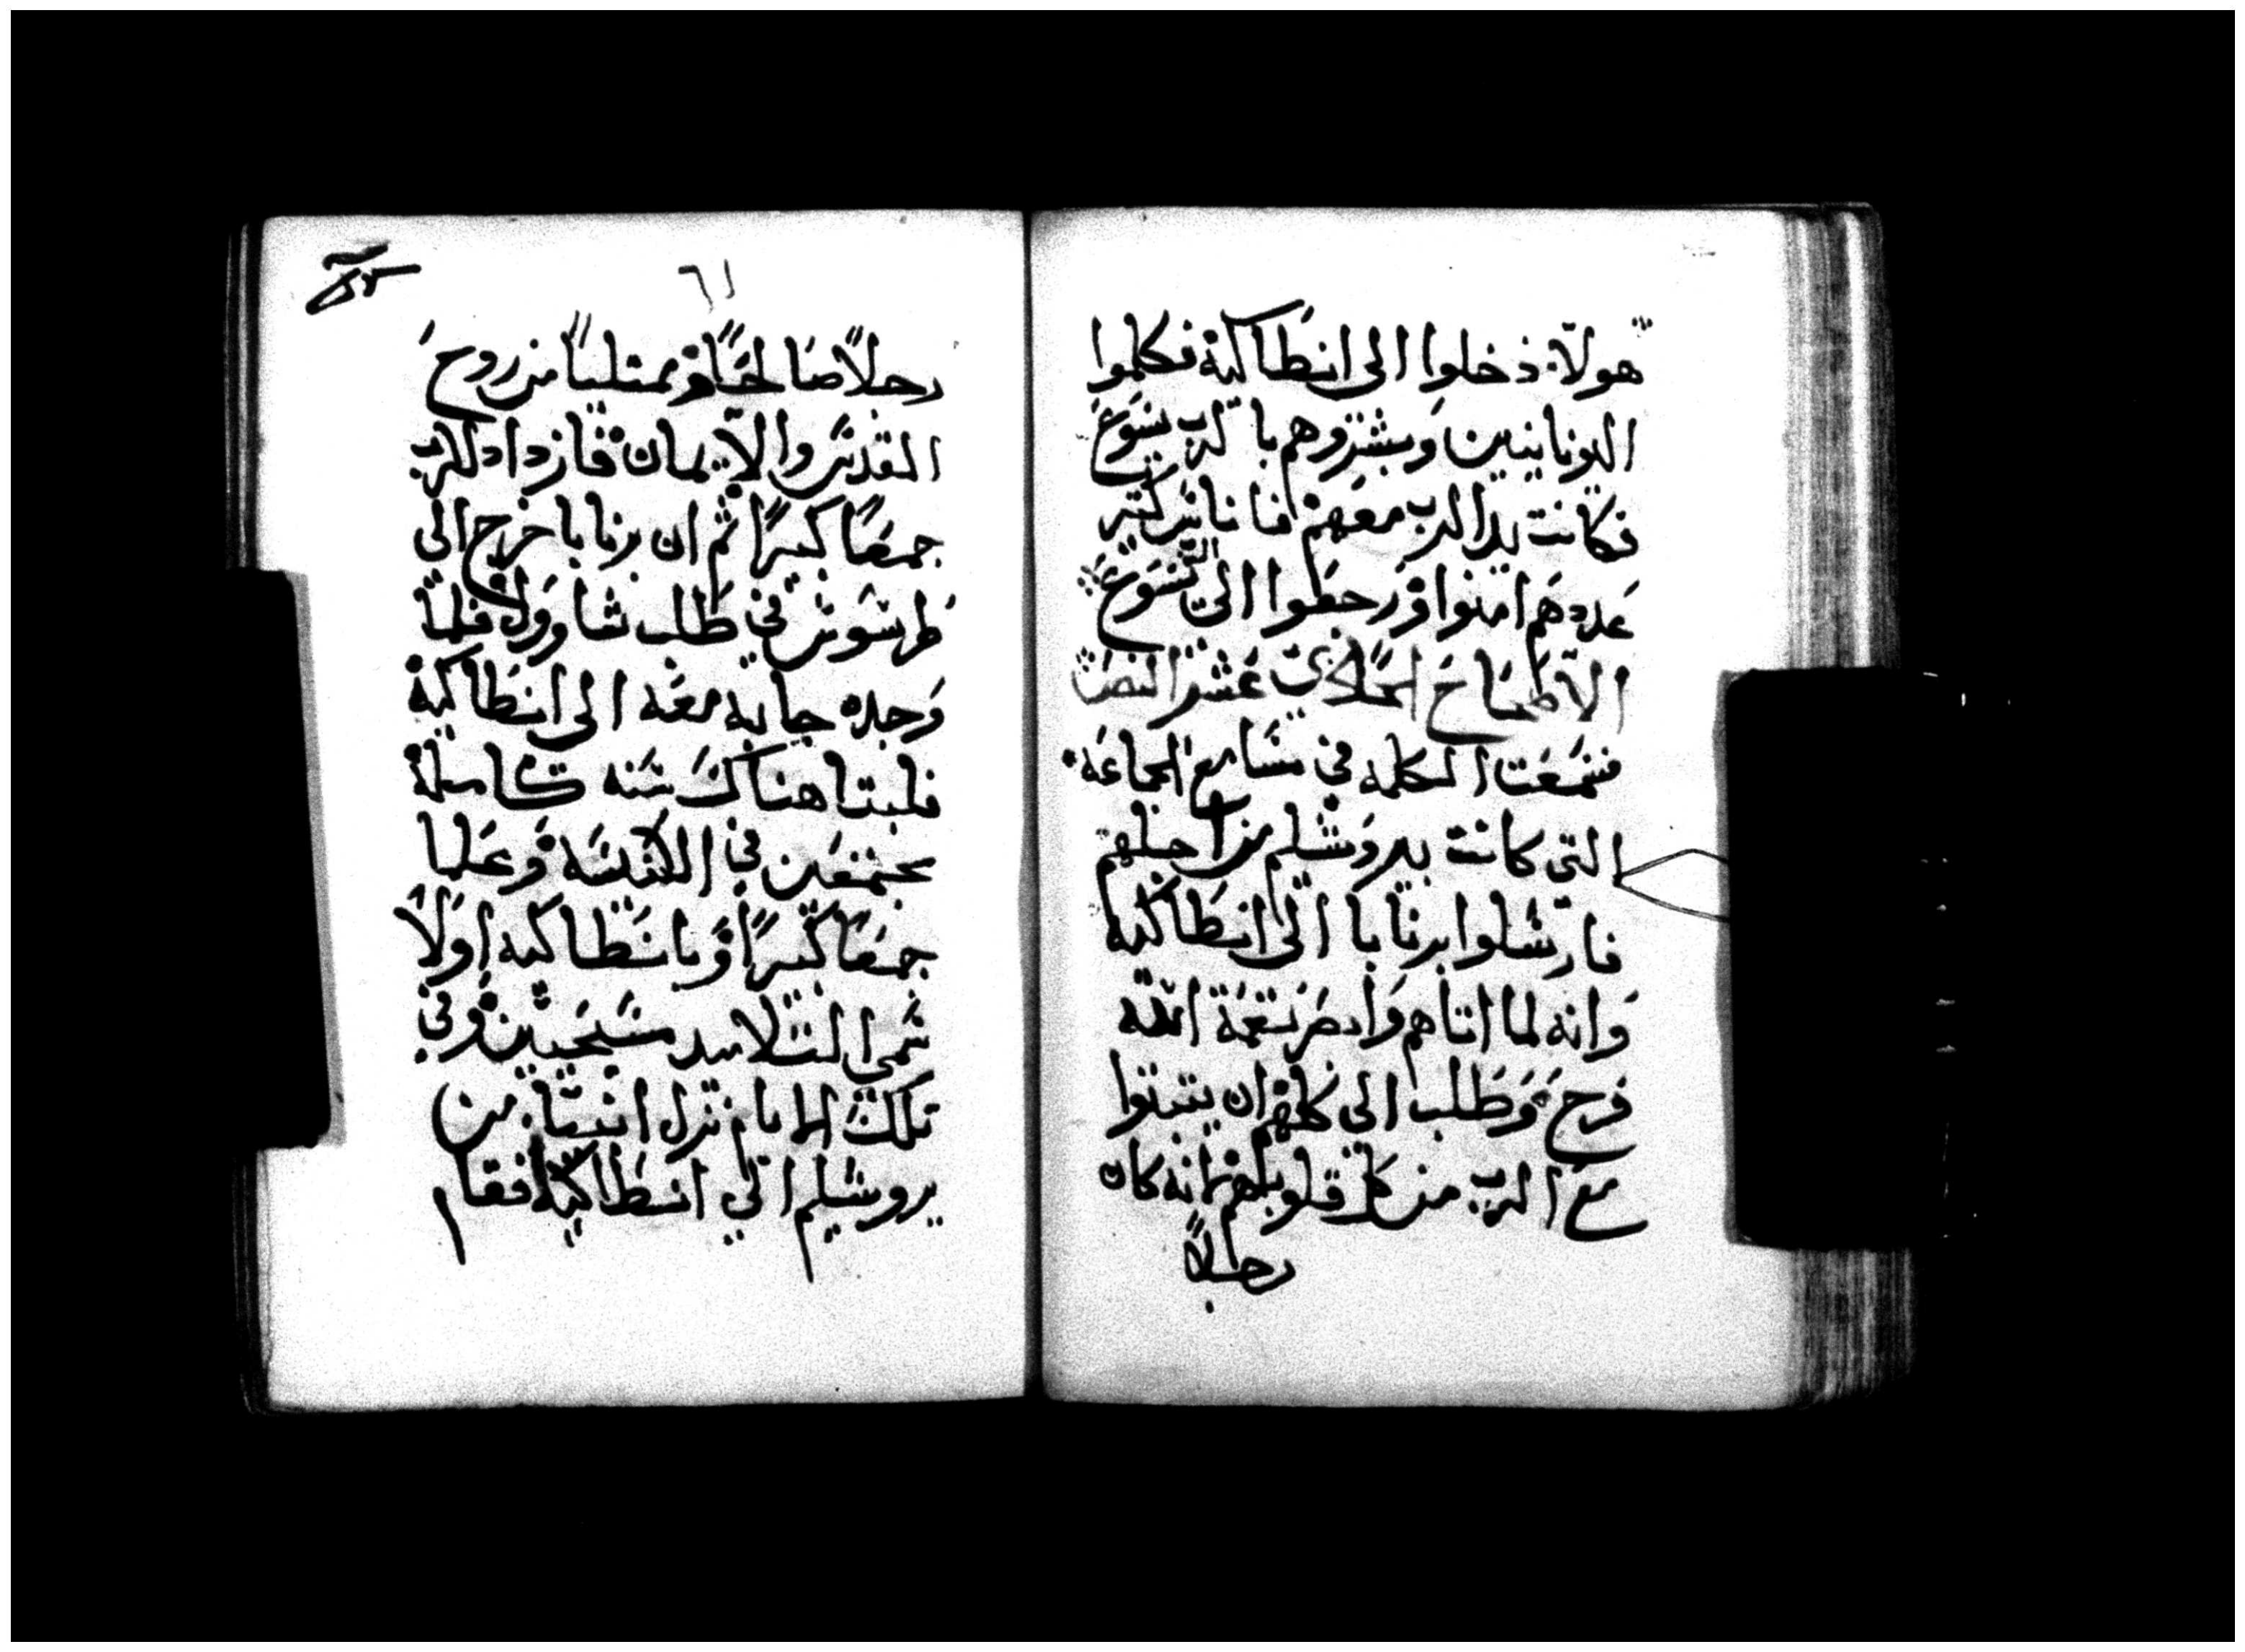 هولاء ذخلوا الى انطاكية فكلموا
اليونانيين وبشروهم بالرب يسوع
فكانت يد الرب معهم فاناس كتير
عددهم امنوا ورجعوا الى يسوع
الاصحاح الحادي عشر النص
فسمعت الكلمه في مسامع الجماعه
التي كانت بيروشليم من اجلهم
فارسلوا برنابا الى انطاكيه
وانه لما اتاهم وابصر نعمة الله
فرح وطلب الى كلهم ان يتبتوا
مع الرب من كل قلوبهم لانه كان
رجلاً
٦١
رجلاً صالحاً وممتلياً من روح
القدس والايمان فازداد للرب
جمعاً كبيراً ثم ان برنابا خرج الى
طرسوس في طلب شاوول فلما
وجده جا به معه الى انطاكية
فلبتا هناك سنه كاملة
مجتمعين في الكنيسه وعلما
جمعاً كبيراً وبانطاكيه اولاً
سمى التلاميد مسيحيين وفي
تلك الايام نزل انبياء من
يروشليم الي انطاكيه فقام